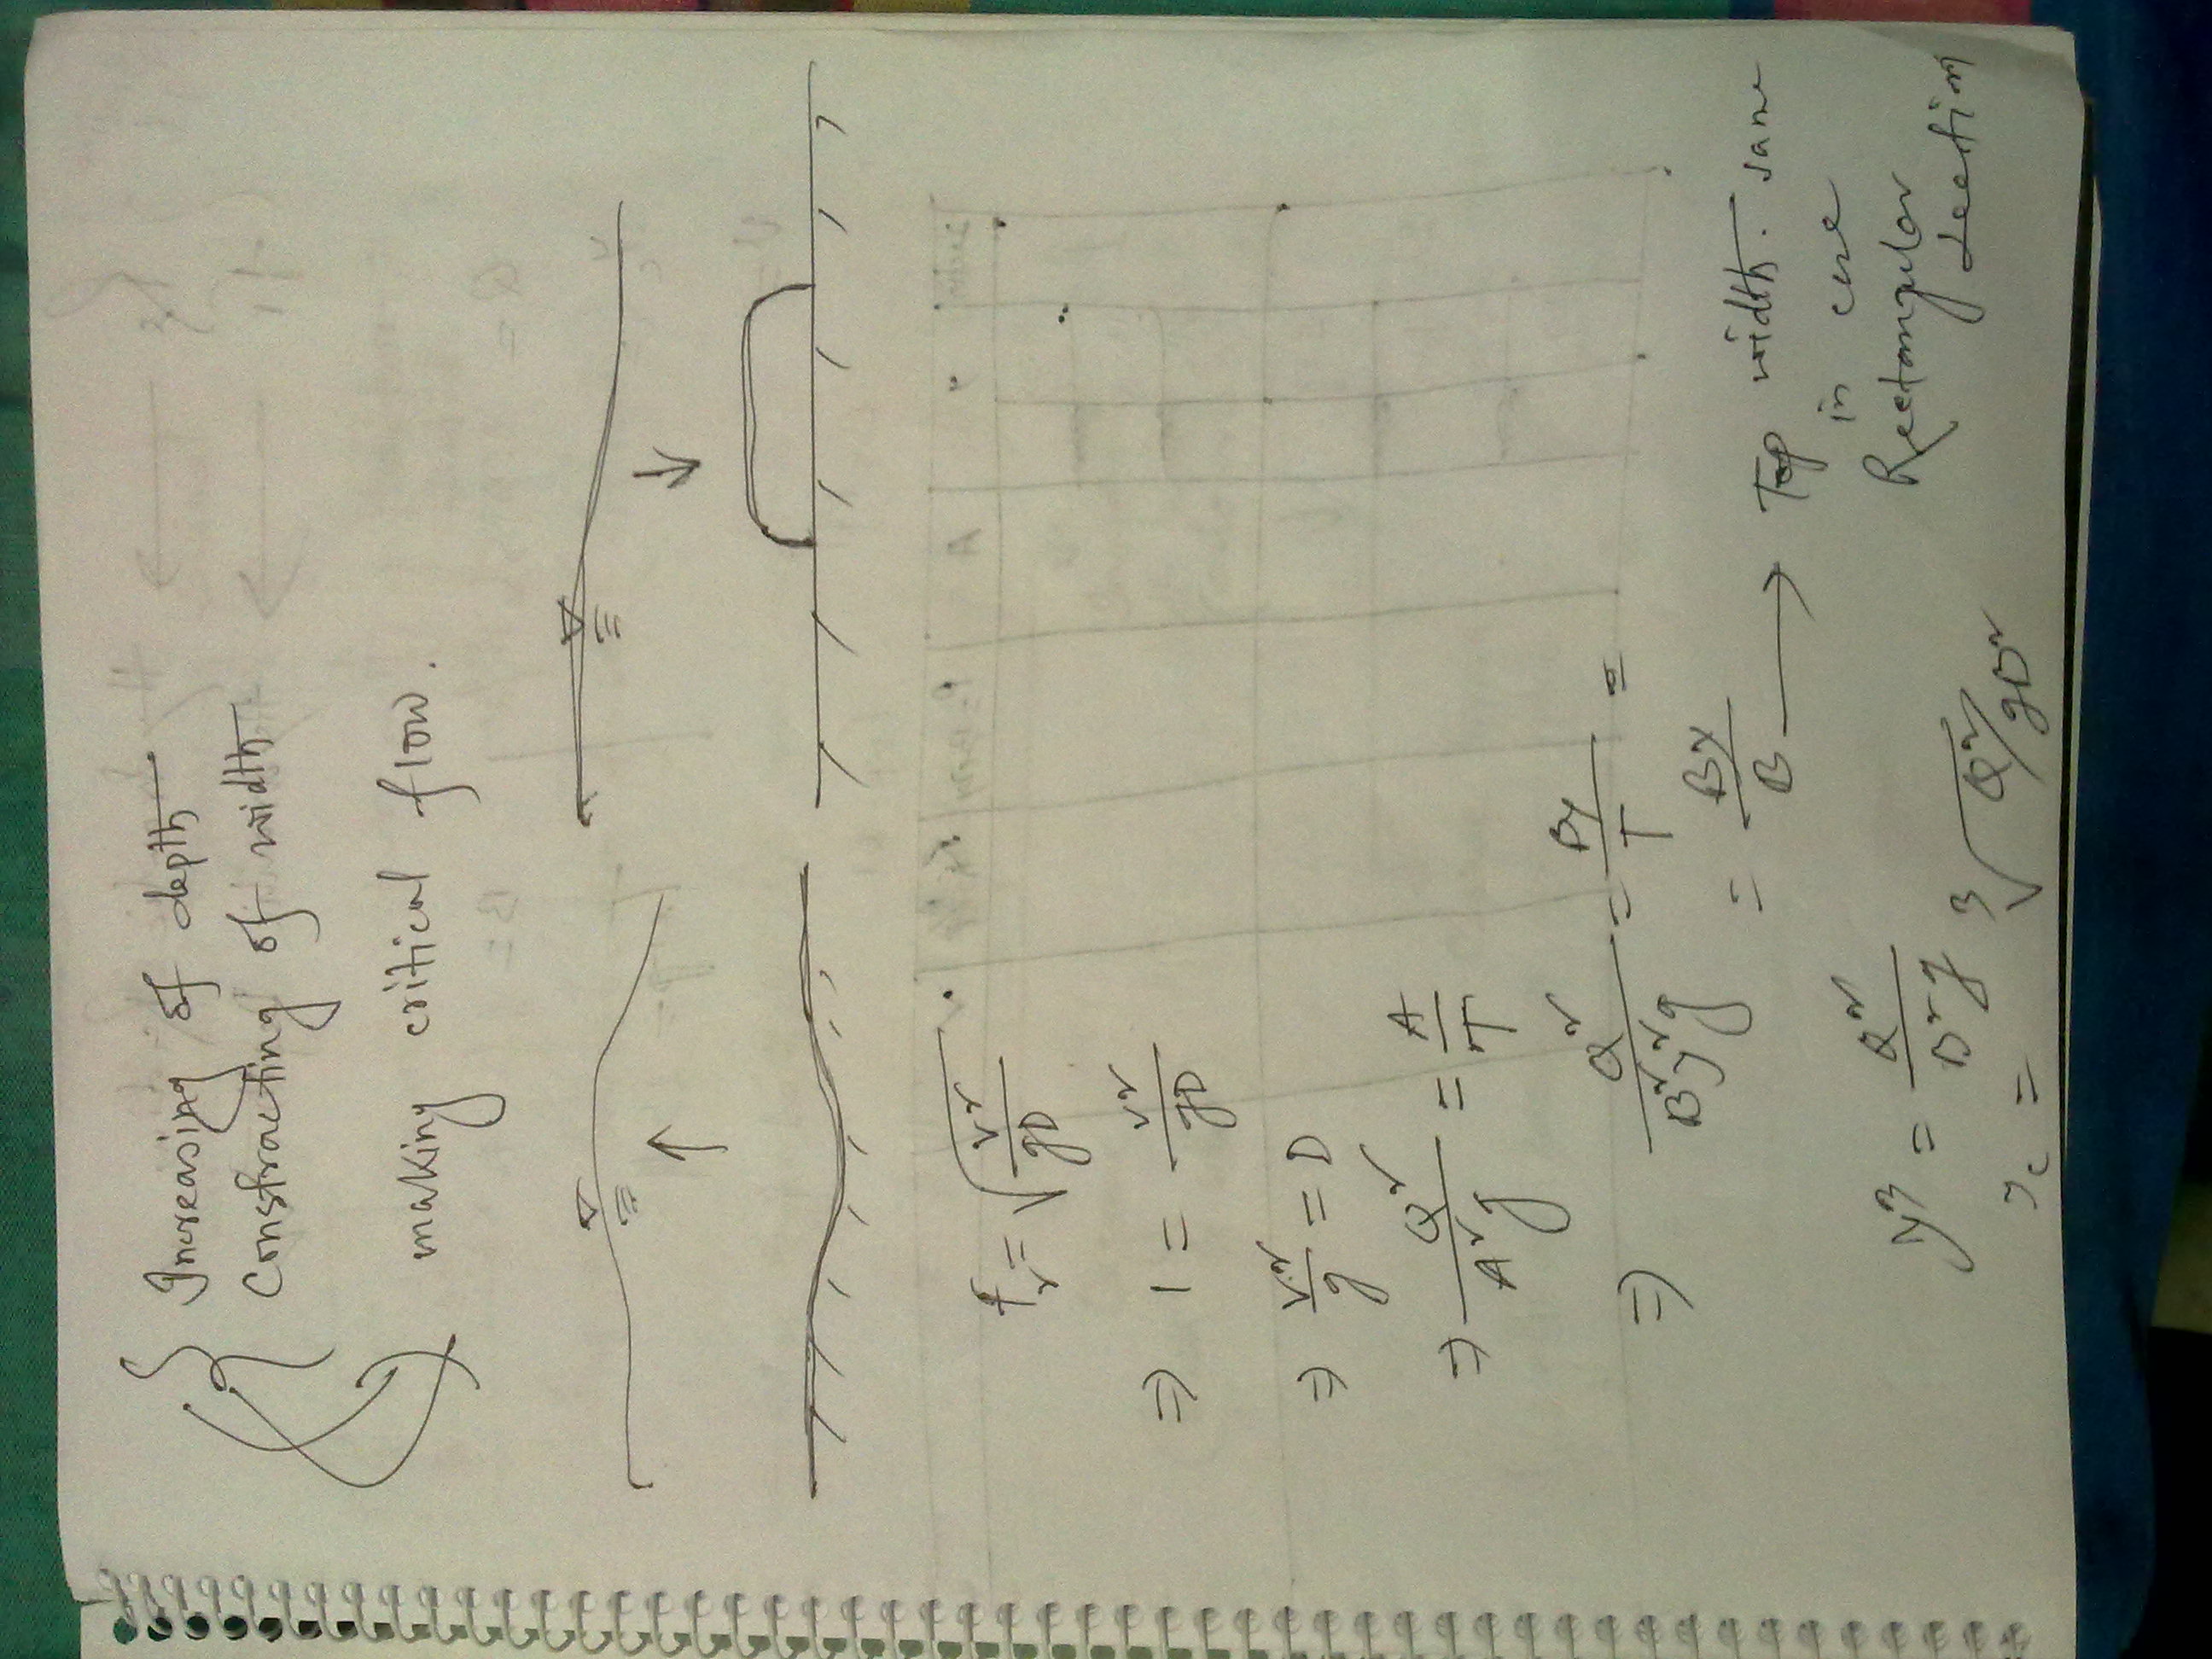 Increasing of depth
Constracting of width
making critical flow.
Fr = √(V²/gD)
⇒ 1 = V²/gD
⇒ V²/g = D
⇒ Q²/A²g = A/T
⇒ Q²/B²y²g = By/T =
= By/B → Top width same
in case
Rectangular
section
y³ = Q²/B²g
yc = ³√(Q²/gB²)